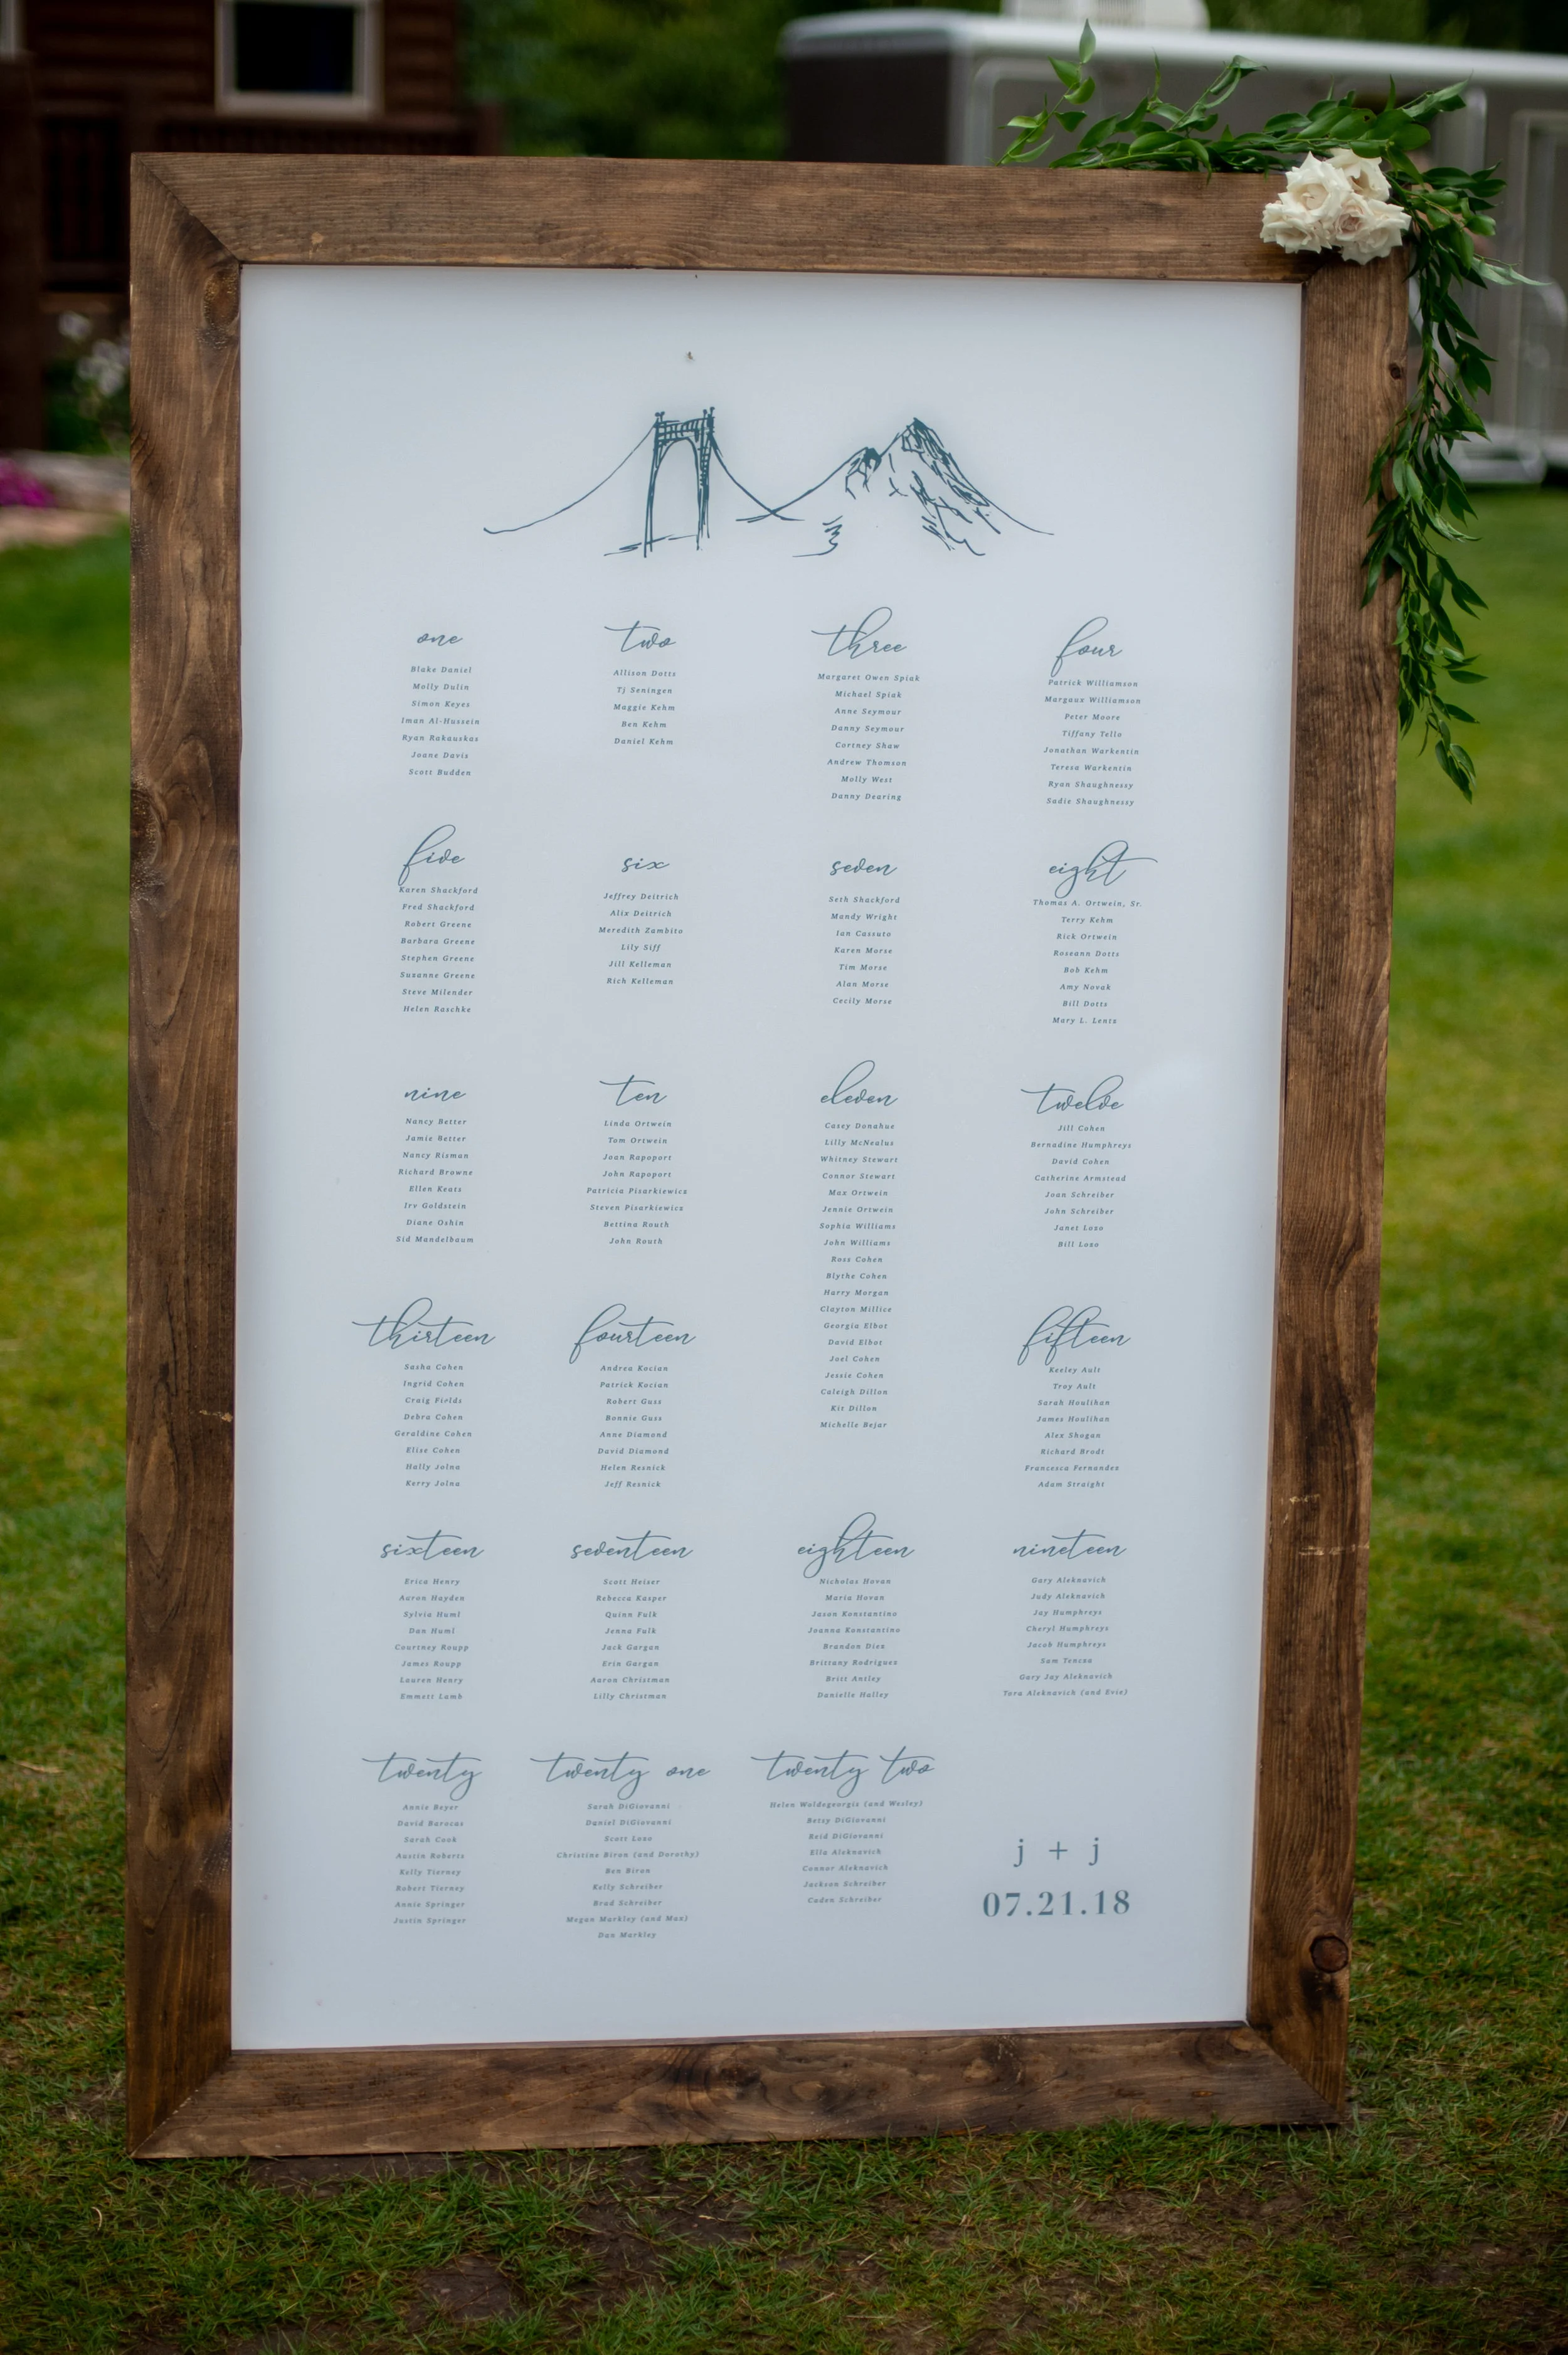 one
Blake Daniel
Molly Dulin
Simon Keyes
Iman Al-Hussein
Ryan Rakauskas
Joane Davis
Scott Budden
two
Allison Dotts
Tj Seningen
Maggie Kehm
Ben Kehm
Daniel Kehm
three
Margaret Owen Spiak
Michael Spiak
Anne Seymour
Danny Seymour
Cortney Shaw
Andrew Thomson
Molly West
Danny Dearing
four
Patrick Williamson
Margaux Williamson
Peter Moore
Tiffany Tello
Jonathan Warkentin
Teresa Warkentin
Ryan Shaughnessy
Sadie Shaughnessy
five
Karen Shackford
Fred Shackford
Robert Greene
Barbara Greene
Stephen Greene
Suzanne Greene
Steve Milender
Helen Raschke
six
Jeffrey Deitrich
Alix Deitrich
Meredith Zambito
Lily Siff
Jill Kelleman
Rich Kelleman
seven
Seth Shackford
Mandy Wright
Ian Cassuto
Karen Morse
Tim Morse
Alan Morse
Cecily Morse
eight
Thomas A. Ortwein, Sr.
Terry Kehm
Rick Ortwein
Roseann Dotts
Bob Kehm
Amy Novak
Bill Dotts
Mary L. Lentz
nine
Nancy Better
Jamie Better
Nancy Risman
Richard Browne
Ellen Keats
Irv Goldstein
Diane Oshin
Sid Mandelbaum
ten
Linda Ortwein
Tom Ortwein
Joan Rapoport
John Rapoport
Patricia Pisarkiewicz
Steven Pisarkiewicz
Bettina Routh
John Routh
eleven
Casey Donahue
Lilly McNealus
Whitney Stewart
Connor Stewart
Max Ortwein
Jennie Ortwein
Sophia Williams
John Williams
Ross Cohen
Blythe Cohen
Harry Morgan
Clayton Millice
Georgia Elbot
David Elbot
Joel Cohen
Jessie Cohen
Caleigh Dillon
Kit Dillon
Michelle Bejar
twelve
Jill Cohen
Bernadine Humphreys
David Cohen
Catherine Armstead
Joan Schreiber
John Schreiber
Janet Lozo
Bill Lozo
thirteen
Sasha Cohen
Ingrid Cohen
Craig Fields
Debra Cohen
Geraldine Cohen
Elise Cohen
Hally Jolna
Kerry Jolna
fourteen
Andrea Kocian
Patrick Kocian
Robert Guss
Bonnie Guss
Anne Diamond
David Diamond
Helen Resnick
Jeff Resnick
fifteen
Keeley Ault
Troy Ault
Sarah Houlihan
James Houlihan
Alex Shogan
Richard Brodt
Francesca Fernandez
Adam Straight
sixteen
Erica Henry
Aaron Hayden
Sylvia Huml
Dan Huml
Courtney Roupp
James Roupp
Lauren Henry
Emmett Lamb
seventeen
Scott Heiser
Rebecca Kasper
Quinn Fulk
Jenna Fulk
Jack Gargan
Erin Gargan
Aaron Christman
Lilly Christman
eighteen
Nicholas Hovan
Maria Hovan
Jason Konstantino
Joanna Konstantino
Brandon Diez
Brittany Rodriguez
Britt Antley
Danielle Halley
nineteen
Gary Aleknavich
Judy Aleknavich
Jay Humphreys
Cheryl Humphreys
Jacob Humphreys
Sam Tencza
Gary Jay Aleknavich
Tora Aleknavich (and Evie)
twenty
Annie Beyer
David Barocas
Sarah Cook
Austin Roberts
Kelly Tierney
Robert Tierney
Annie Springer
Justin Springer
twenty one
Sarah DiGiovanni
Daniel DiGiovanni
Scott Lozo
Christine Biron (and Dorothy)
Ben Biron
Kelly Schreiber
Brad Schreiber
Megan Markley (and Max)
Dan Markley
twenty two
Helen Woldegeorgis (and Wesley)
Betsy DiGiovanni
Reid DiGiovanni
Ella Aleknavich
Connor Aleknavich
Jackson Schreiber
Caden Schreiber
j + j
07.21.18